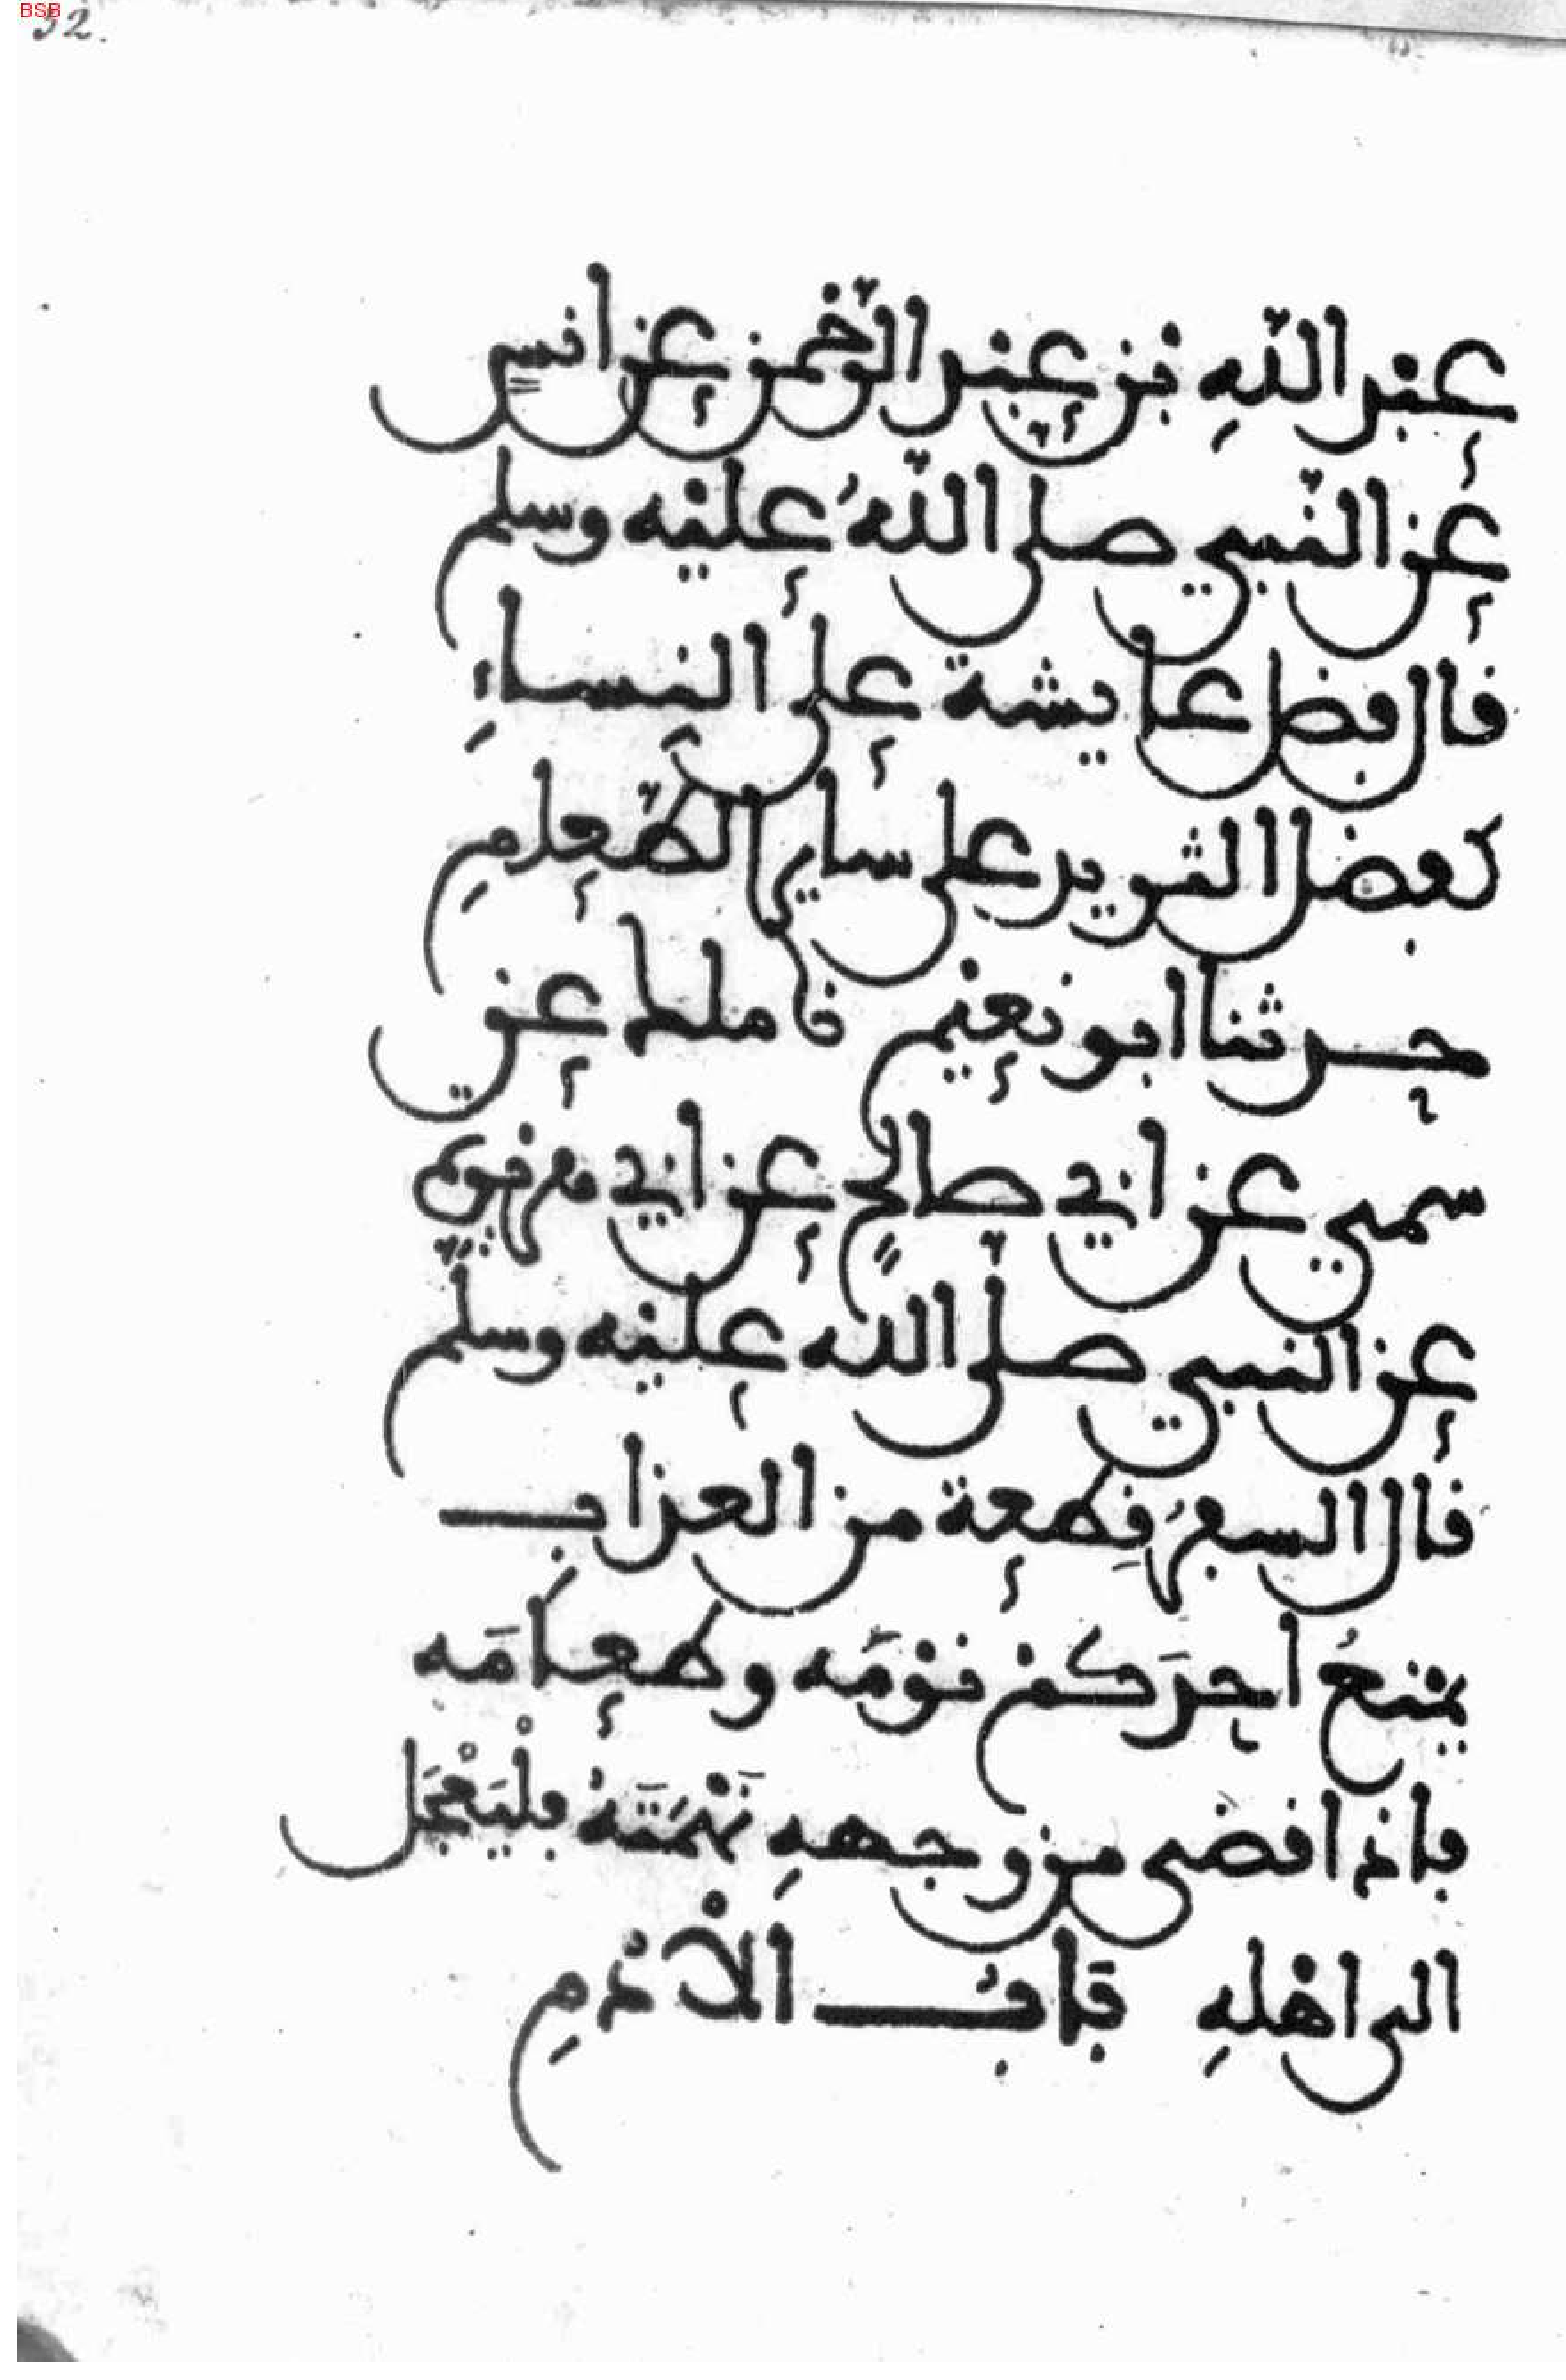 BSB
32.
عبد اللهِ بن عبد الرّحمن عن انسٍ
عن النّبي صلى اللهُ عليه وسلم
قال فضل عايشة على النِّساءِ
كفضل الثريد على ساير الطّعامِ
حدثنا ابو نعيم نا ملك عن
سمي عن ابي صالحٍ عن ابي هريرة
عن النبي صلى الله عليه وسلم
قال السفرُ قِطعة من العذابِ
يمنعُ احدَكم نوْمَه وطعامَه
فاذا قضى من وجههِ نَهْمَتَهُ فلْيَعْجَل
الى اهْلهِ بَابُ الأُدْمِ